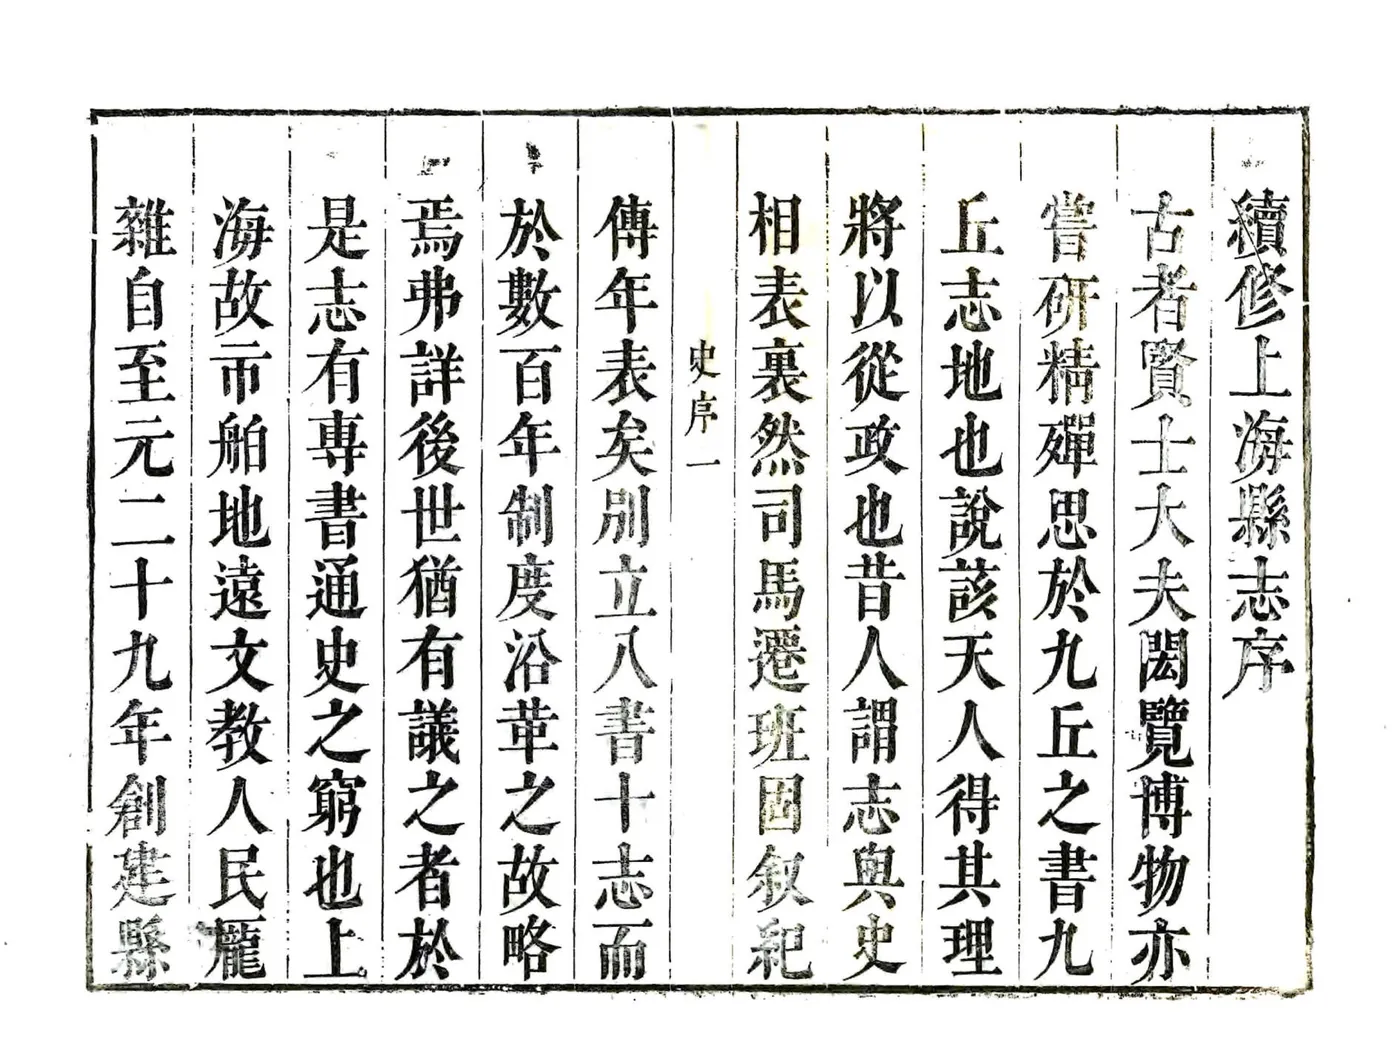 續修上海縣志序
古者賢士大夫閎覽博物亦
嘗研精殫思於九丘之書九
丘志地也說該天人得其理
將以從政也昔人謂志與史
相表裏然司馬遷班固叙紀
史序一
傳年表矣別立八書十志而
於數百年制度沿革之故略
焉弗詳後世猶有議之者於
是志有專書通史之窮也上
海故市舶地遠文教人民厖
雜自至元二十九年創建縣